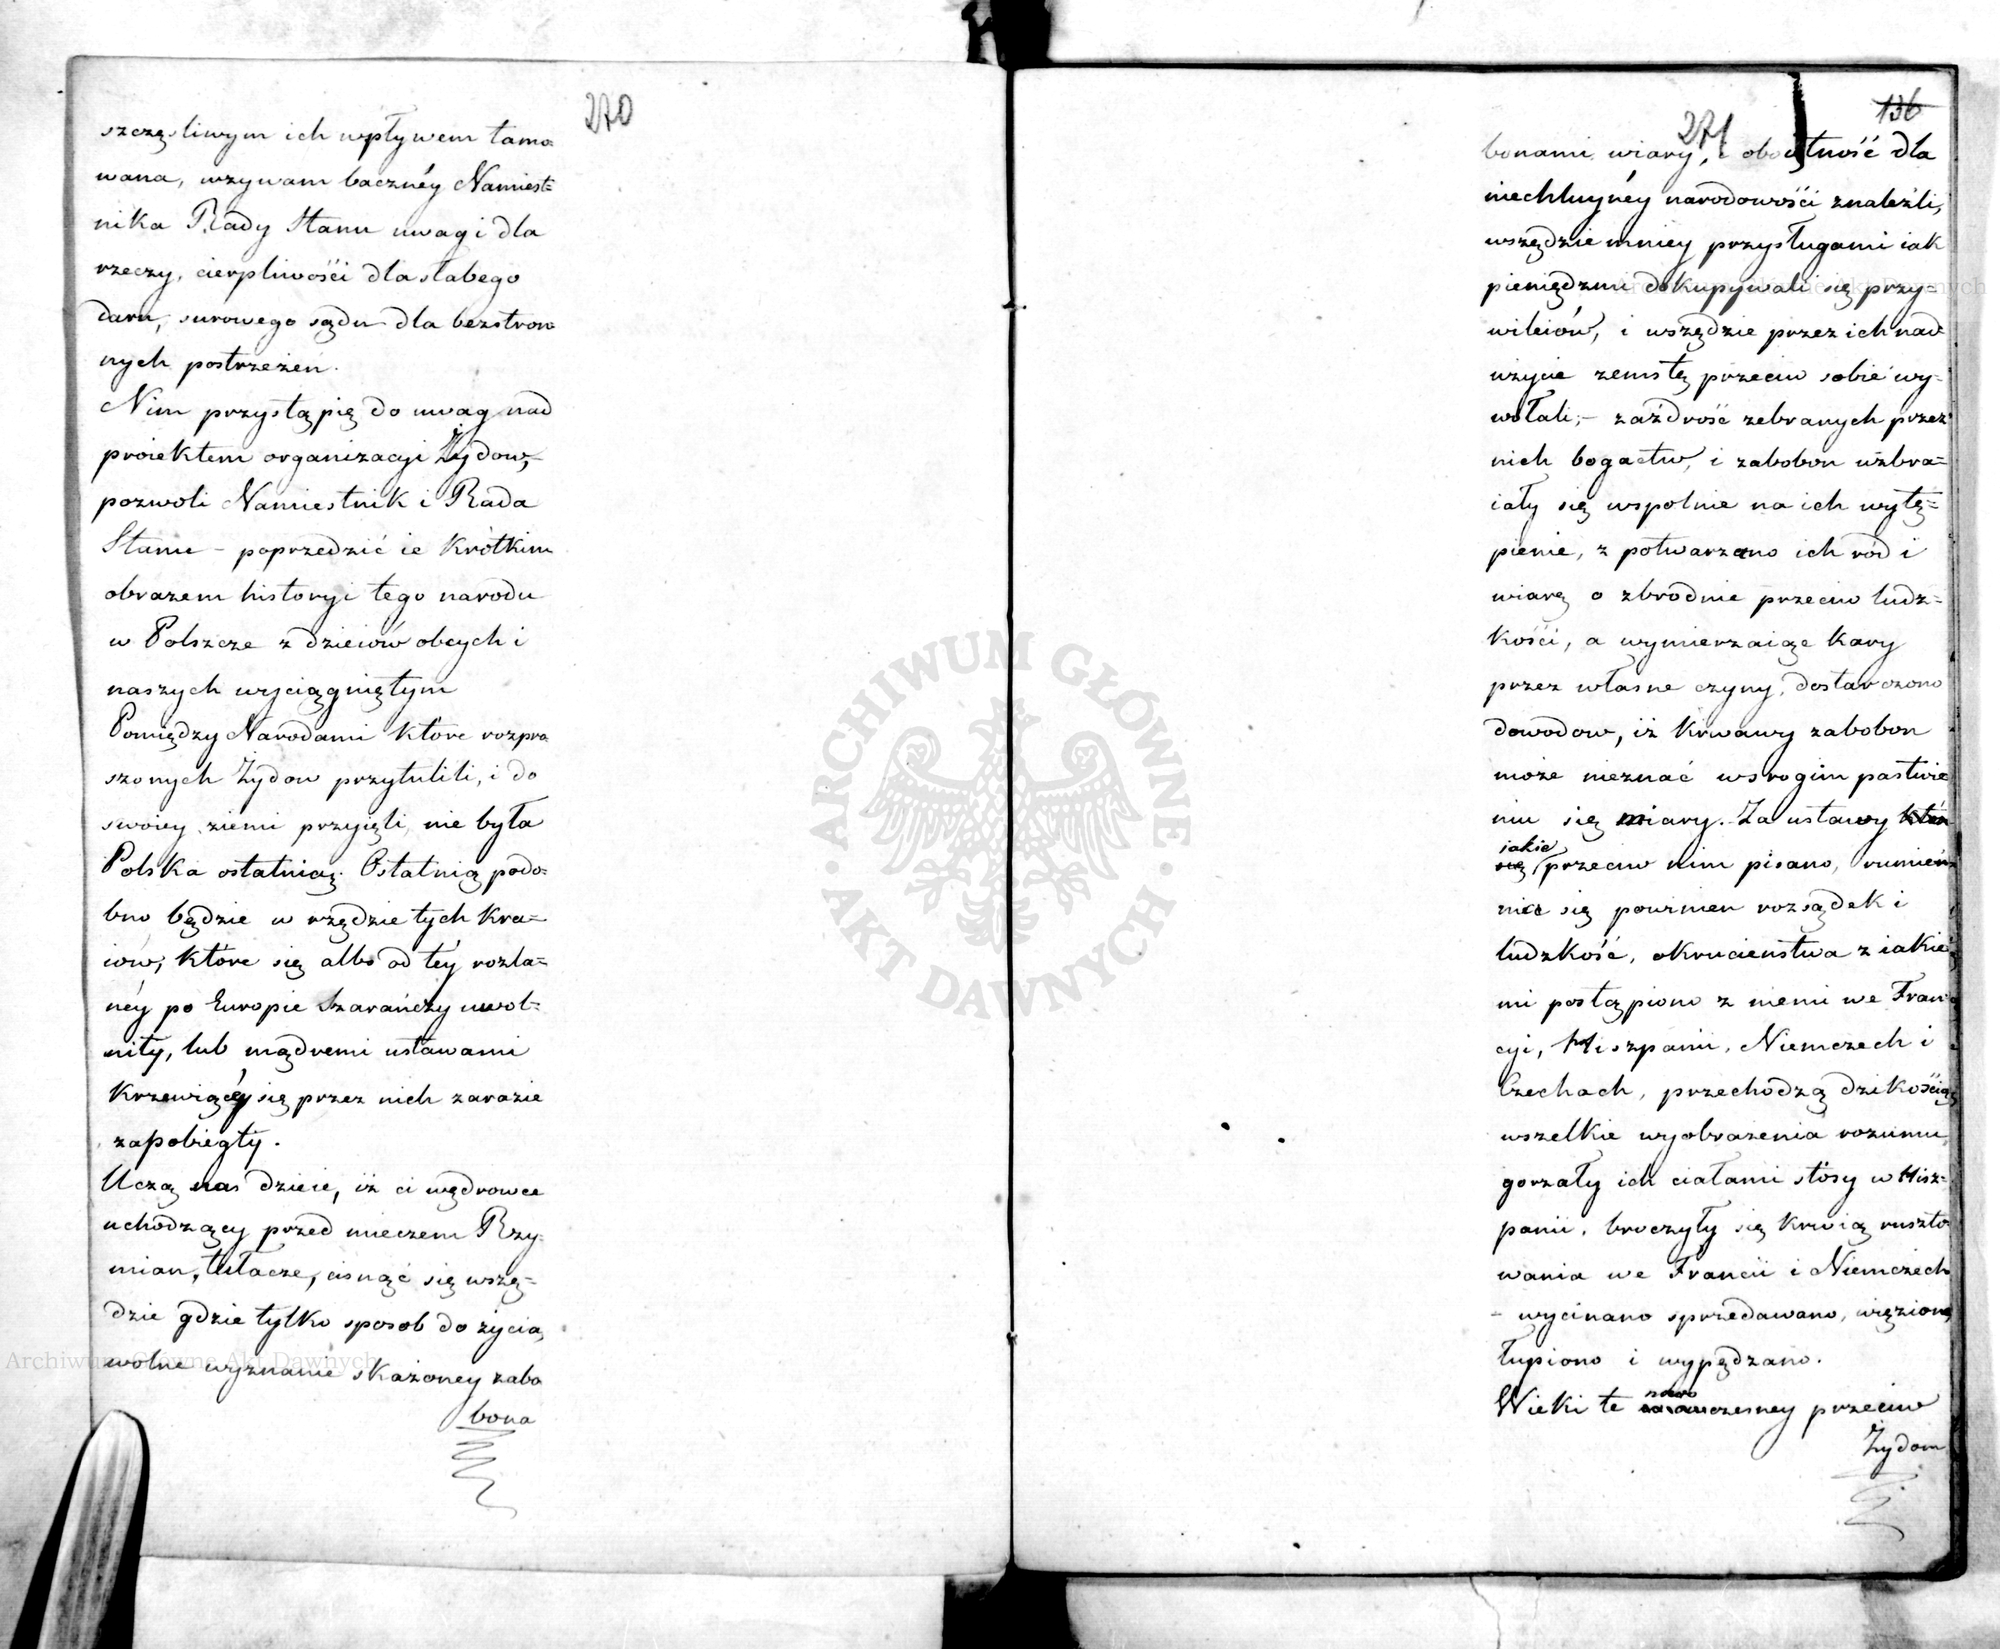 270
szczęsliwym ich wpływem tamo-
wana, wzywam bacznéy Namiest=
nika Rady Stanu uwagi dla
rzeczy, cierpliwości dla słabego
daru, surowego sądu dla bezstron
nych postrzeżen.
Nim przystąpię do uwag nad
proiektem organizacyi Żydow,
pozwoli Namiestnik i Rada
Stanu - poprzedzić ie krótkim
obrazem historyi tego narodu
w Polszcze z dzieiów obcych i
naszych wyciągniętym
Pomiędzy Narodami które rozpro
szonych Żydow przytulili, i do
swoiey ziemi przyięli, nie była
Polska ostatnią. Ostatnią podo-
bno będzie w rzędzie tych kra=
iów, które się albo od téy rozla=
néy po Europie Szarańczy uwol=
niły, lub mądremi ustawami
krzewiącéy się przez nich zarazie
zapobiegły.
Uczą nas dzieie, iż ci wędrowce
uchodzący przed mieczem Rzy-
mian, tułacze, cisnąć się wszę=
dzie gdzie tylko sposob do życia,
wolne wyznanie skażoney zabo
bona
136
271
bonami wiary, i oboiętność dla
niechluynéy narodowości znaleźli,
wszędzie mniey przysługami iak
pieniędzmi dokupywali się przy=
wileiów, i wszędzie przez ich nad
użycie zemstę przeciw sobie wy-
wołali; - zaźdrość zebranych przez
nich bogactw, i zabobon uzbra=
iały się wspolnie na ich wytę=
pienie, z potwarzano ich ród i
wiarę o zbrodnie przeciw ludz=
kości, a wymierzaiąc kary
przez własne czyny, dostarczono
dowodow, iż krwawy zabobon
może nieznać w srogim pastwie
niu się miary. Za ustawy
iakie
przeciw nim pisano, rumie
nić się powinen rozsądek i
ludzkość, okrucieństwa z iakie
mi postąpiono z niemi we Fran
cyi, Hiszpanii, Niemczech i
Czechach, przechodzą dzikością
wszelkie wyobrażenia rozumu,
gorzały ich ciałami stosy w Hisz=
panii, broczyły się krwią ruszto
wania we Francii i Niemczech
- wycinano sprzedawano, więziono
łupiono i wypędzano.
nowo
Wieki te czesney przeciw
Żydom
ARCHIWUM GŁÓWNE · AKT DAWNYCH ·
Archiwum Główne Akt Dawnych